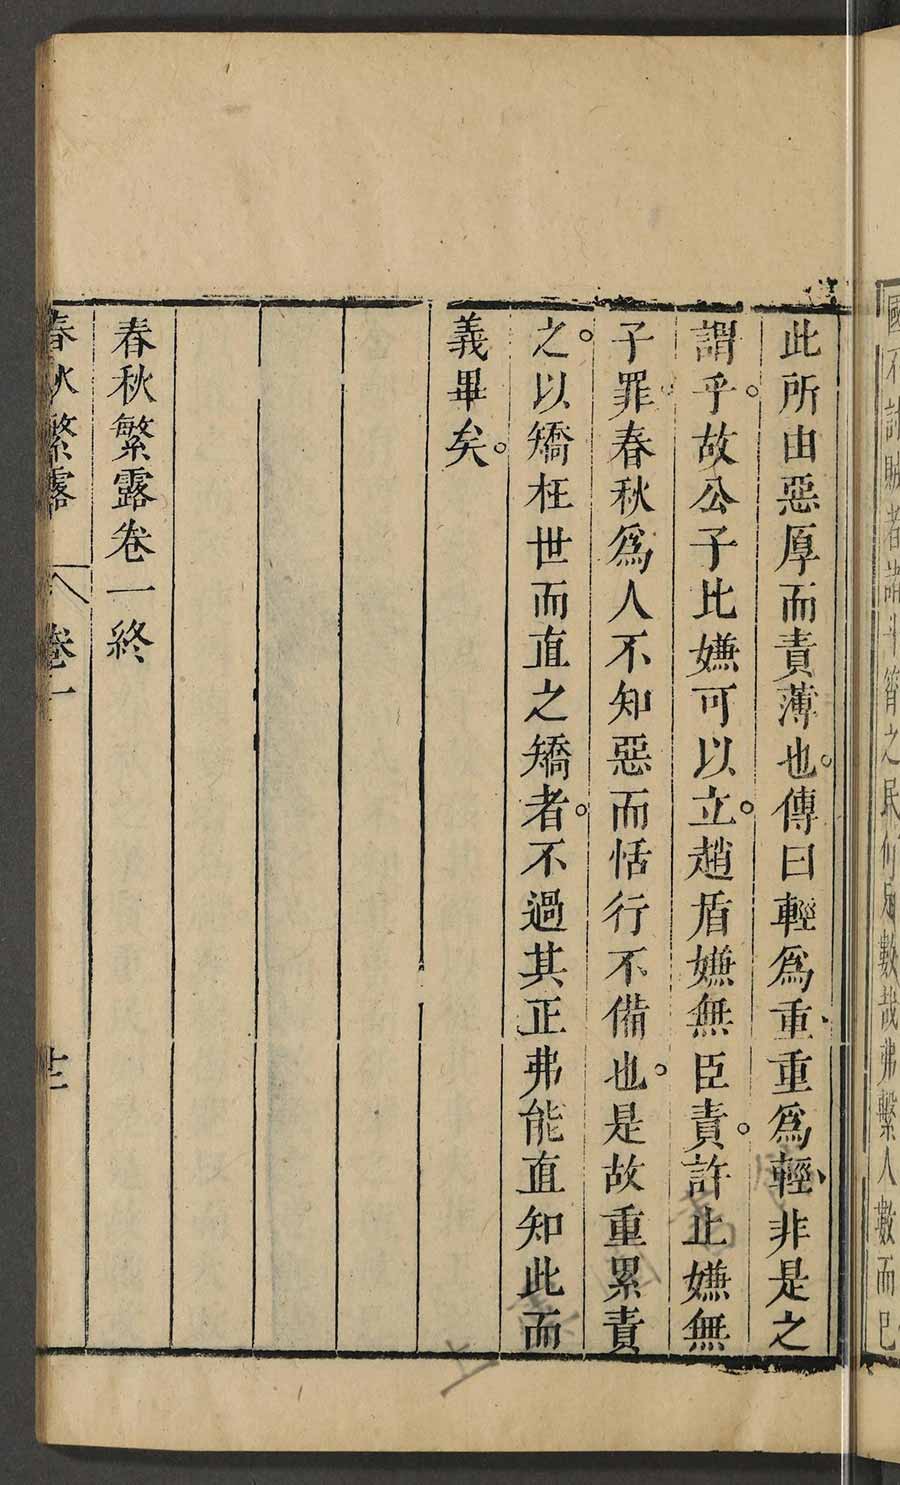 國不討賊者諸斗筲之民何足數哉弗繫人數而已
此所由惡厚而責薄也。傳曰輕爲重、重爲輕、非是之
謂乎。故公子比嫌可以立。趙盾嫌無臣責。許止嫌無
子罪。春秋爲人不知惡而恬行不備也。是故重累責
之。以矯枉世而直之矯者。不過其正弗能直知此而
義畢矣。
春秋繁露卷一終
春秋繁露 卷一 十三